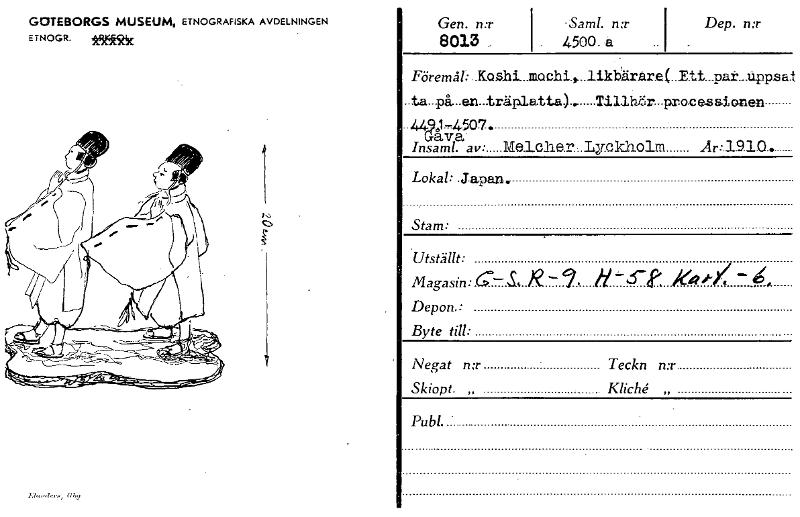 GÖTEBORGS MUSEUM, ETNOGRAFISKA AVDELNINGEN
ETNOGR. ARKEOL.
20 cm.
Elanders, Gbg
Gen. n:r Saml. n:r Dep. n:r
8013 4500.a
Föremål: Koshi mochi, likbärare( Ett par uppsat
ta på en träplatta). Tillhör processionen
4491-4507.
Gåva
Insaml. av: Melcher Lyckholm År: 1910.
Lokal: Japan.
Stam:
Utställt:
Magasin: G-S. R-9. H-58 Kart.-6.
Depon.:
Byte till:
Negat n:r Teckn n:r
Skiopt. „ Kliché „
Publ.